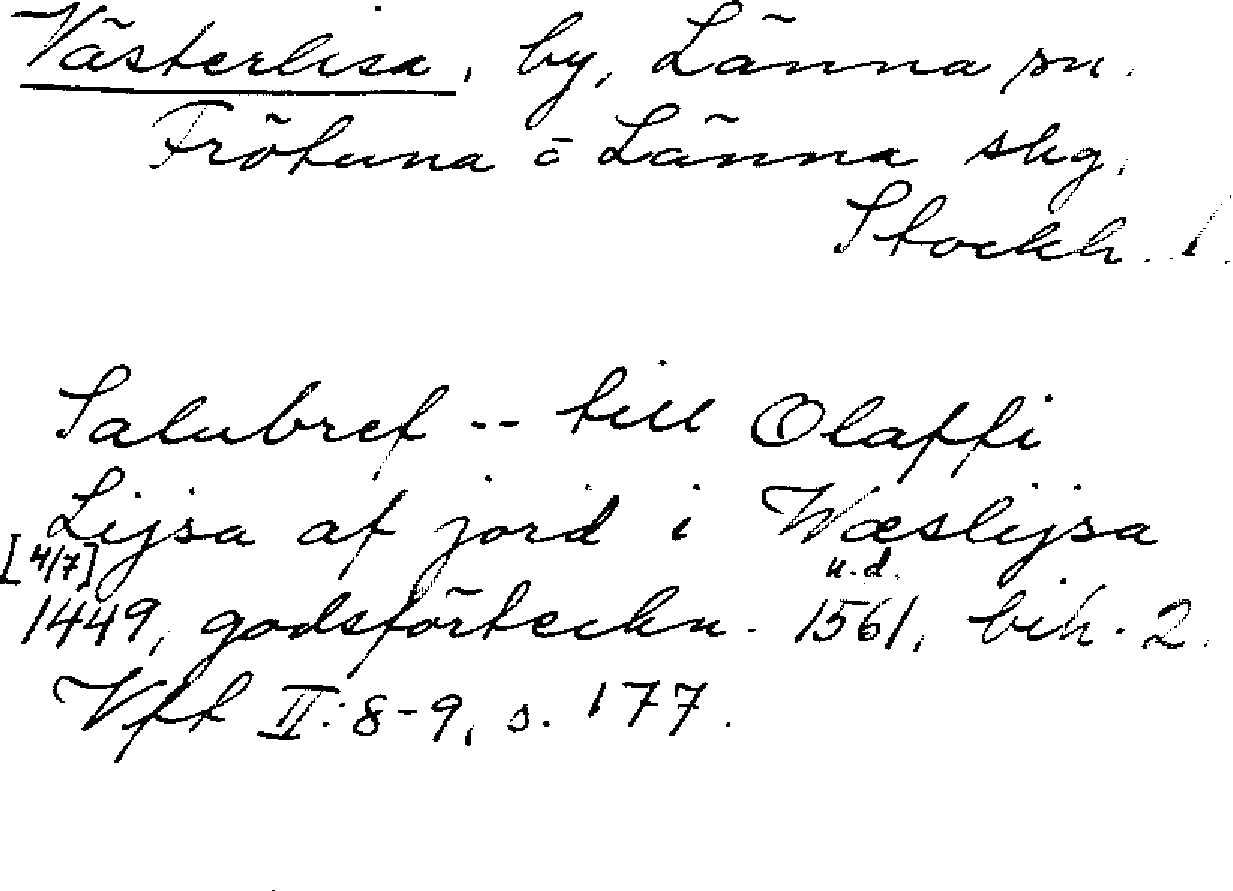 Västerlisa, by, Länna sn.
Frötuna o Länna skg.
Stockh. l.
Salubref -- till Olaffi
Lijsa af jord i Wæslijsa
[4/7] u.d.
1449, godsförteckn. 1561, bih. 2.
Vft II: 8-9, s. 177.